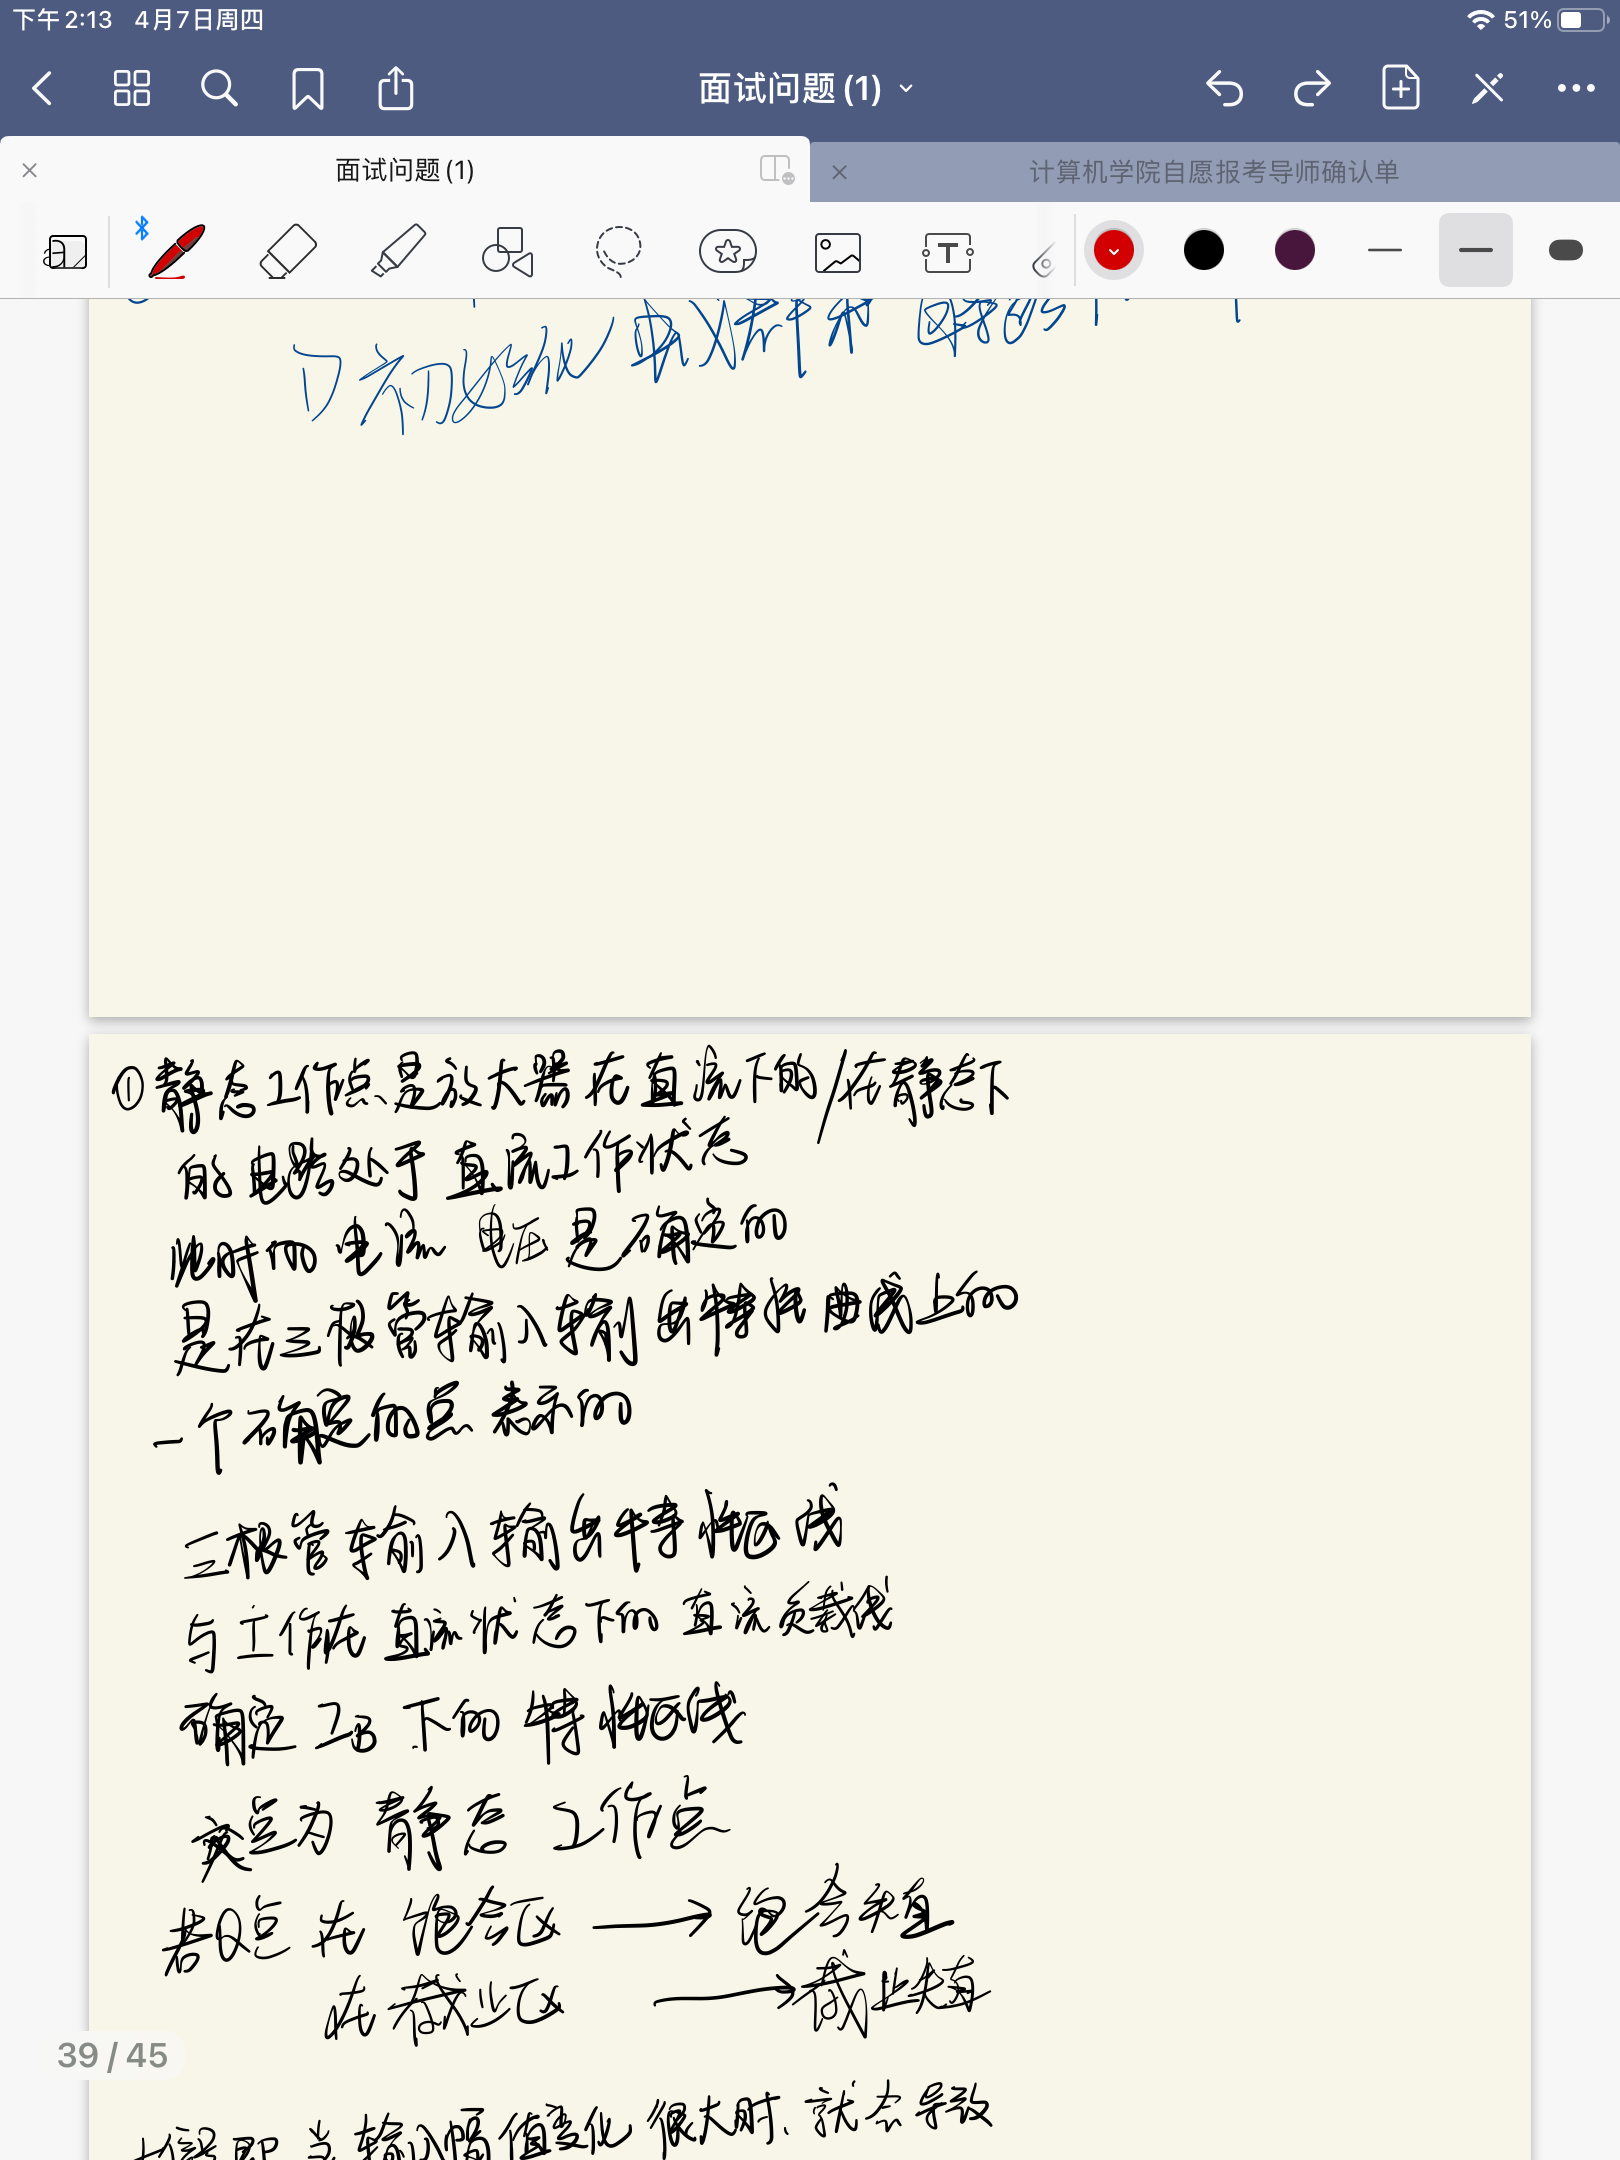 下午2:13 4月7日周四
51%
面试问题 (1)
面试问题 (1)
计算机学院自愿报考导师确认单
1) 初始化
①静态工作点、是放大器在直流下的/在静态下
的电路处于直流工作状态
此时的电流 电压是确定的
是在三极管输入输出特性曲线上的
一个确定的点表示的
三极管输入输出特性区线
与工作在直流状态下的直流负载线
确定 IB 下的特性区线
交点为 静态 工作点
若Q点 在 饱合区 → 饱合失真
在截止区 → 截止失真
39 / 45
即 当输入幅值变化很大时、就会导致